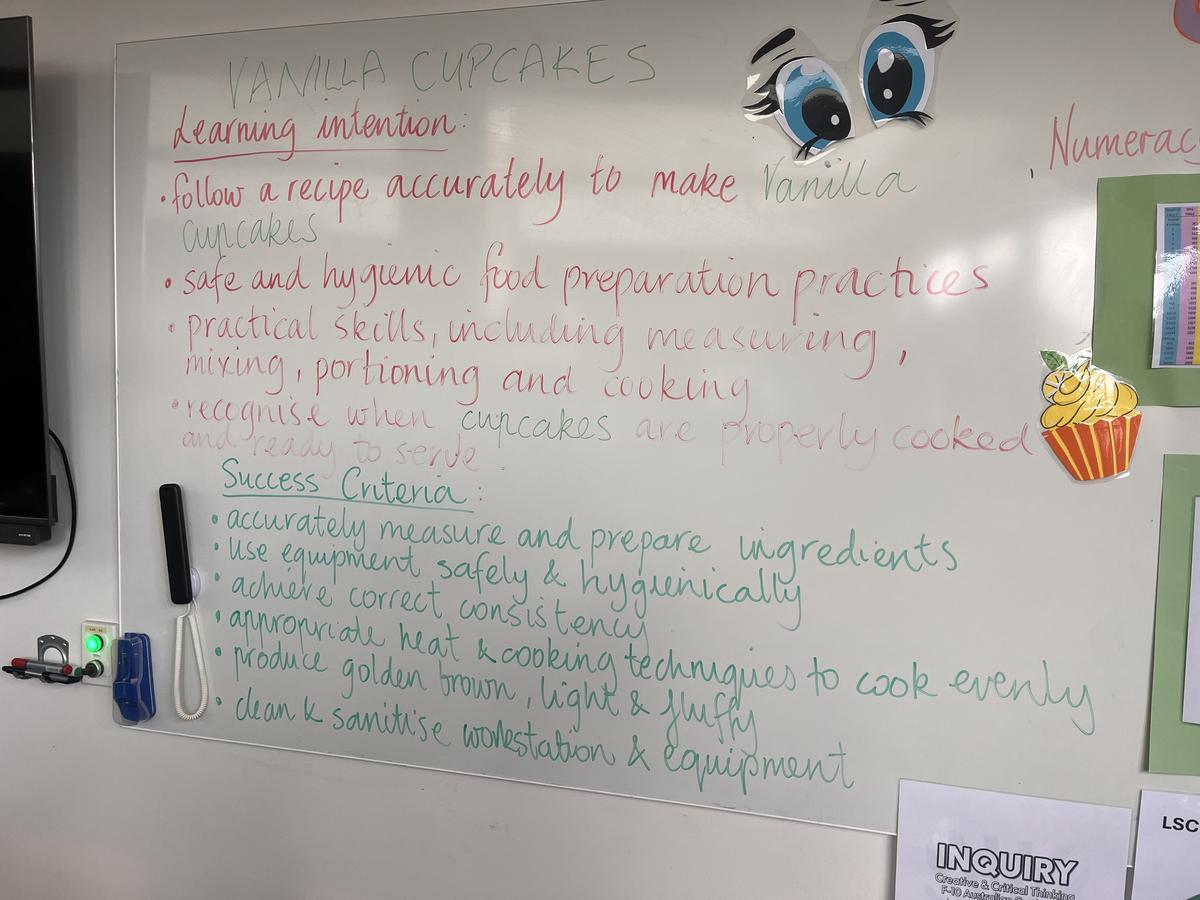 VANILLA CUPCAKES
Learning intention:
• follow a recipe accurately to make Vanilla
cupcakes
• safe and hygienic food preparation practices
• practical skills, including measuring,
mixing, portioning and cooking
• recognise when cupcakes are properly cooked
and ready to serve
Success Criteria:
• accurately measure and prepare ingredients
• use equipment safely & hygienically
• achieve correct consistency
• appropriate heat & cooking techniques to cook evenly
• produce golden brown, light & fluffy
• clean & sanitise workstation & equipment
Numerac
INQUIRY
Creative & Critical Thinking
F-10 Australian
LSC